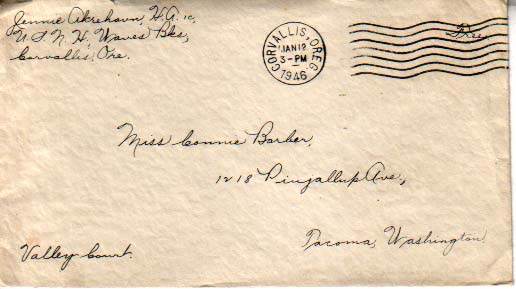 Jennie Akrehavn, H.A. 1c,
U S N H, Waves Bks,
Corvallis, Ore.
CORVALLIS, OREG.
JAN 12
3-PM
1946
Free
Miss Connie Barber,
1218 Puyallup Ave.,
Tacoma, Washington.
Valley Court.